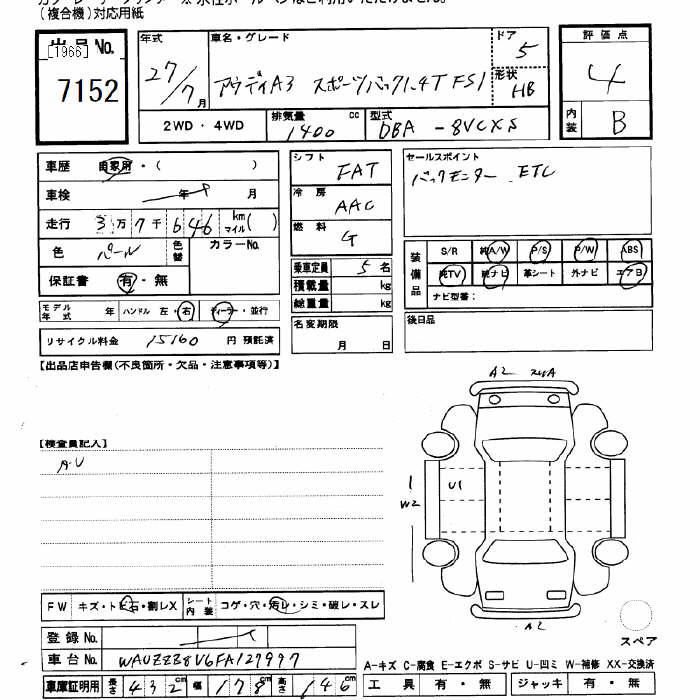 (複合機)対応用紙
出品No.
[1966]
7152
年式
27/7月
車名・グレード
アウディA3 スポーツバック1.4T FSI
ドア
5
形状
HB
2WD・4WD
排気量
1400 cc
型式
DBA -8VCXS
評価点
4
内装
B
車歴 自家用・( )
車検 年 月
走行 3万7千646 km マイル( )
色 パール 色替 カラーNo.
保証書 有・無
モデル年式 年 ハンドル 左・右 ディーラー・並行
リサイクル料金 15160 円 預託済
シフト
FAT
冷房
AAC
燃料
G
乗車定員 5名
積載量 kg
総重量 kg
名変期限
月 日
セールスポイント
バックモニター ETC
装備品
S/R 純A/W P/S P/W ABS
純TV 純ナビ 革シート 外ナビ エアB
ナビ型番:
後日品
【出品店申告欄(不良箇所・欠品・注意事項等)】
【検査員記入】
A・U
A2
U1
W2
A2
スペア
FW キズ・トビ石・割レX シート内装 コゲ・穴・汚レ・シミ・破レ・スレ
登録No.
車台No. WAUZZZ8V6FA127997
車庫証明用 長さ 432cm 幅 178cm 高さ 146cm
A-キズ C-腐食 E-エクボ S-サビ U-凹ミ W-補修 XX-交換済
工具 有・無 ジャッキ 有・無